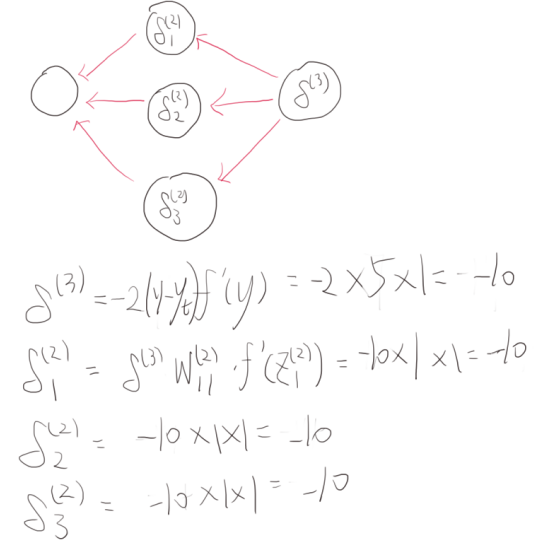 δ₁⁽²⁾
δ₂⁽²⁾
δ⁽³⁾
δ₃⁽²⁾
δ⁽³⁾ = -2(y-yₜ)f'(y) = -2×5×1 = -10
δ₁⁽²⁾ = δ⁽³⁾ W₁₁⁽²⁾ · f'(z₁⁽²⁾) = -10×1×1 = -10
δ₂⁽²⁾ = -10×1×1 = -10
δ₃⁽²⁾ = -10×1×1 = -10